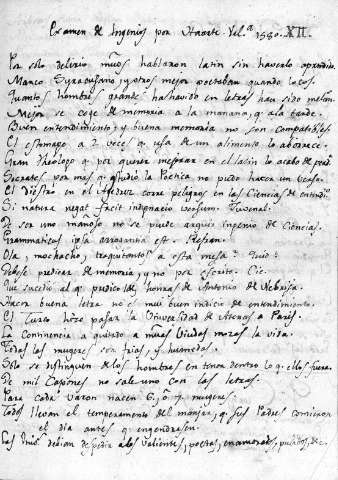 Examen de Ingenios por Huarte Vel.ª 1580. XII.
Por solo delirio muchos hablaron latin sin haverlo aprendido
Marco Syracusano, y otros mejor poetaban quando locos.
Quantos hombres grandes ha havido en letras han sido melan.
Mejor se coge de memoria a la mañana, q. a la tarde.
Buen entendimiento y buena memoria no son compatibles
El estomago a 2 veces q. usa de un alimento lo aborrece.
Gran Theologo q. por querer mejorar en el latin lo acabo de
Socrates por mas q. estudió la Poetica no pudo hacer un verso.
El diestro en el Axedrez corre peligros en las Ciencias de entendi.º
Si natura negat facit indignacio versum. Juvenal.
De ser uno manoso no se puede arguir ingenio de Ciencias.
Grammaticus ipsa arrogantia est. Refran.
Ola, mochacho, traquitantos a esta mesa? Quid?
Debese predicar de memoria, y no por escrito. Cic.
Que sucedio al q. predicó de honras de Antonio de Nebrija.
Hacer buena letra no es mui buen indicio de entendimiento.
El Turco hizo pasar la Universalidad de Atenas a Paris.
La Continencia a quitado a muchas Viudas mozas la vida.
Todas las mugeres son frias, y humedas.
Solo se distinguen de los hombres en tener dentro lo q. ellos fuera.
De mil Capones no sale uno con las letras.
Para cada varon nacen 6, o 7 mugeres.
Todos llevan el temperamento del manjar, q. sus Padres comieron
el dia antes q. engendrasen.
Las debian de pedir a los valientes, poetas, enamorados, &c.